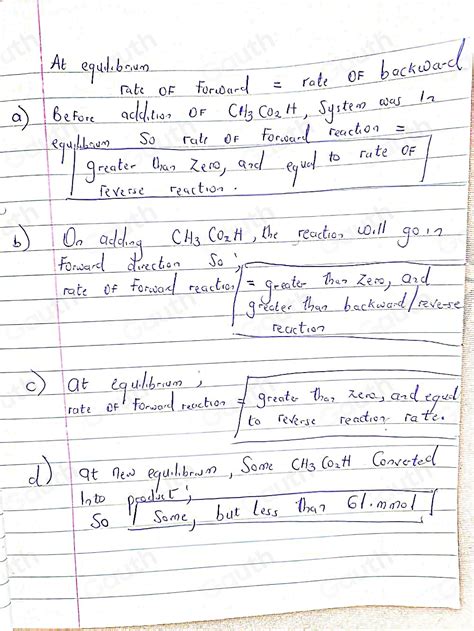 At equilibrium
rate OF Forward = rate OF backward
a) Before addition OF CH3 CO2H, System was In
equilibrium So rate OF Forward reaction =
greater than Zero, and equal to rate OF
reverse reaction.
b) On adding CH3 CO2H, the reaction will go in
Forward direction So;
rate of Forward reaction = greater than Zero, and
greater than backward/reverse
reaction
c) at equilibrium,
rate of Forward reaction = greater than zero, and equal
to reverse reaction rate.
d) at new equilibrium, Some CH3 CO2H Converted
Into product;
So Some, but less than 61.mmol